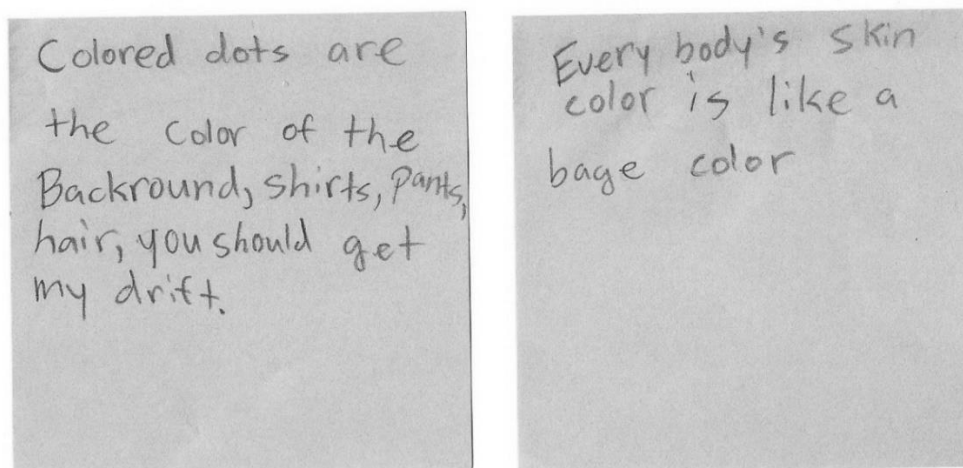 Colored dots are
the color of the
Backround, shirts, pants,
hair, you should get
my drift.
Every body's skin
color is like a
bage color